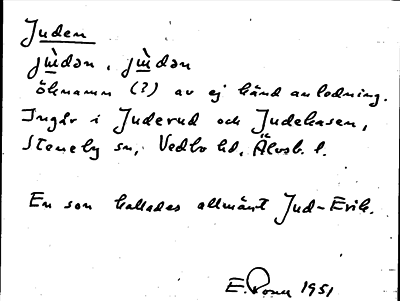 Juden
jɯ̀dən, jɯ̀dən
öknamn (?) av ej känd anledning.
Ingår i Juderud och Judehasen,
Steneby sn, Vedbo hd, Älvsb. l.
En son kallades allmänt Jud-Erik.
E. 1951